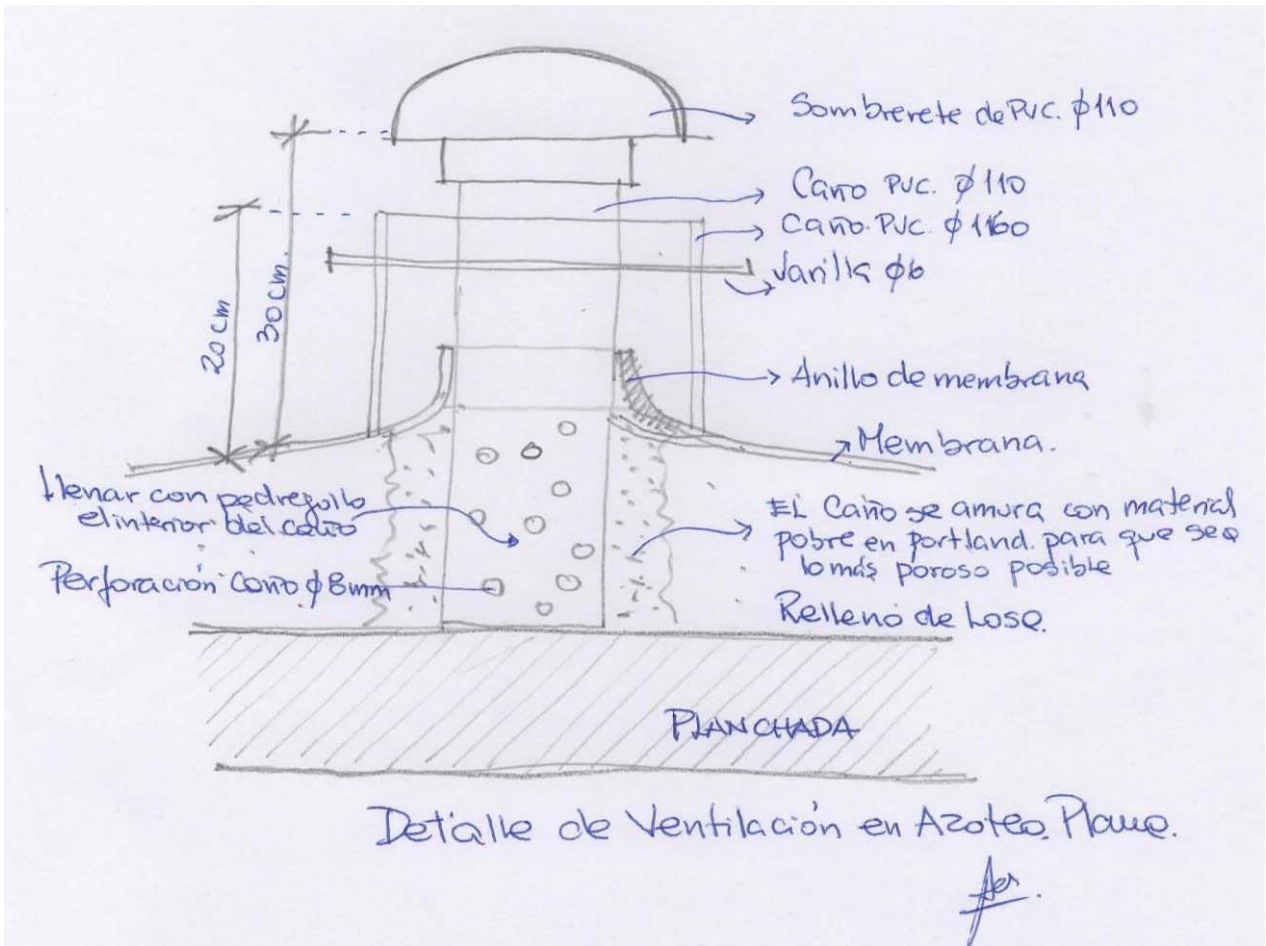 Sombrerete de PVC. φ110
Caño PVC. φ110
Caño. PVC. φ1160
Varilla φ6
20 cm
30 cm.
Anillo de membrana
Membrana.
Llenar con pedregullo
el interior del caño
Perforación caño φ8mm
EL Caño se amura con material
pobre en portland. para que sea
lo más poroso posible
Relleno de Losa.
PLANCHADA
Detalle de Ventilación en Azotea Plana.